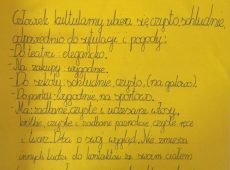 Człowiek kulturalny ubiera się czysto, schludnie,
odpowiednio do sytuacji i pogody:
- Do teatru: elegancko.
- Na zakupy: wygodnie.
- Do szkoły: schludnie, czysto, (na galowo).
- Do parku: wygodnie na sportowo.
- Ma: zadbane, czyste i uczesane włosy,
krótkie, czyste i zadbane paznokcie, czyste ręce
i twarz. Dba o swój wygląd. Nie zmusza
innych ludzi do kontaktów ze swoim ciałem